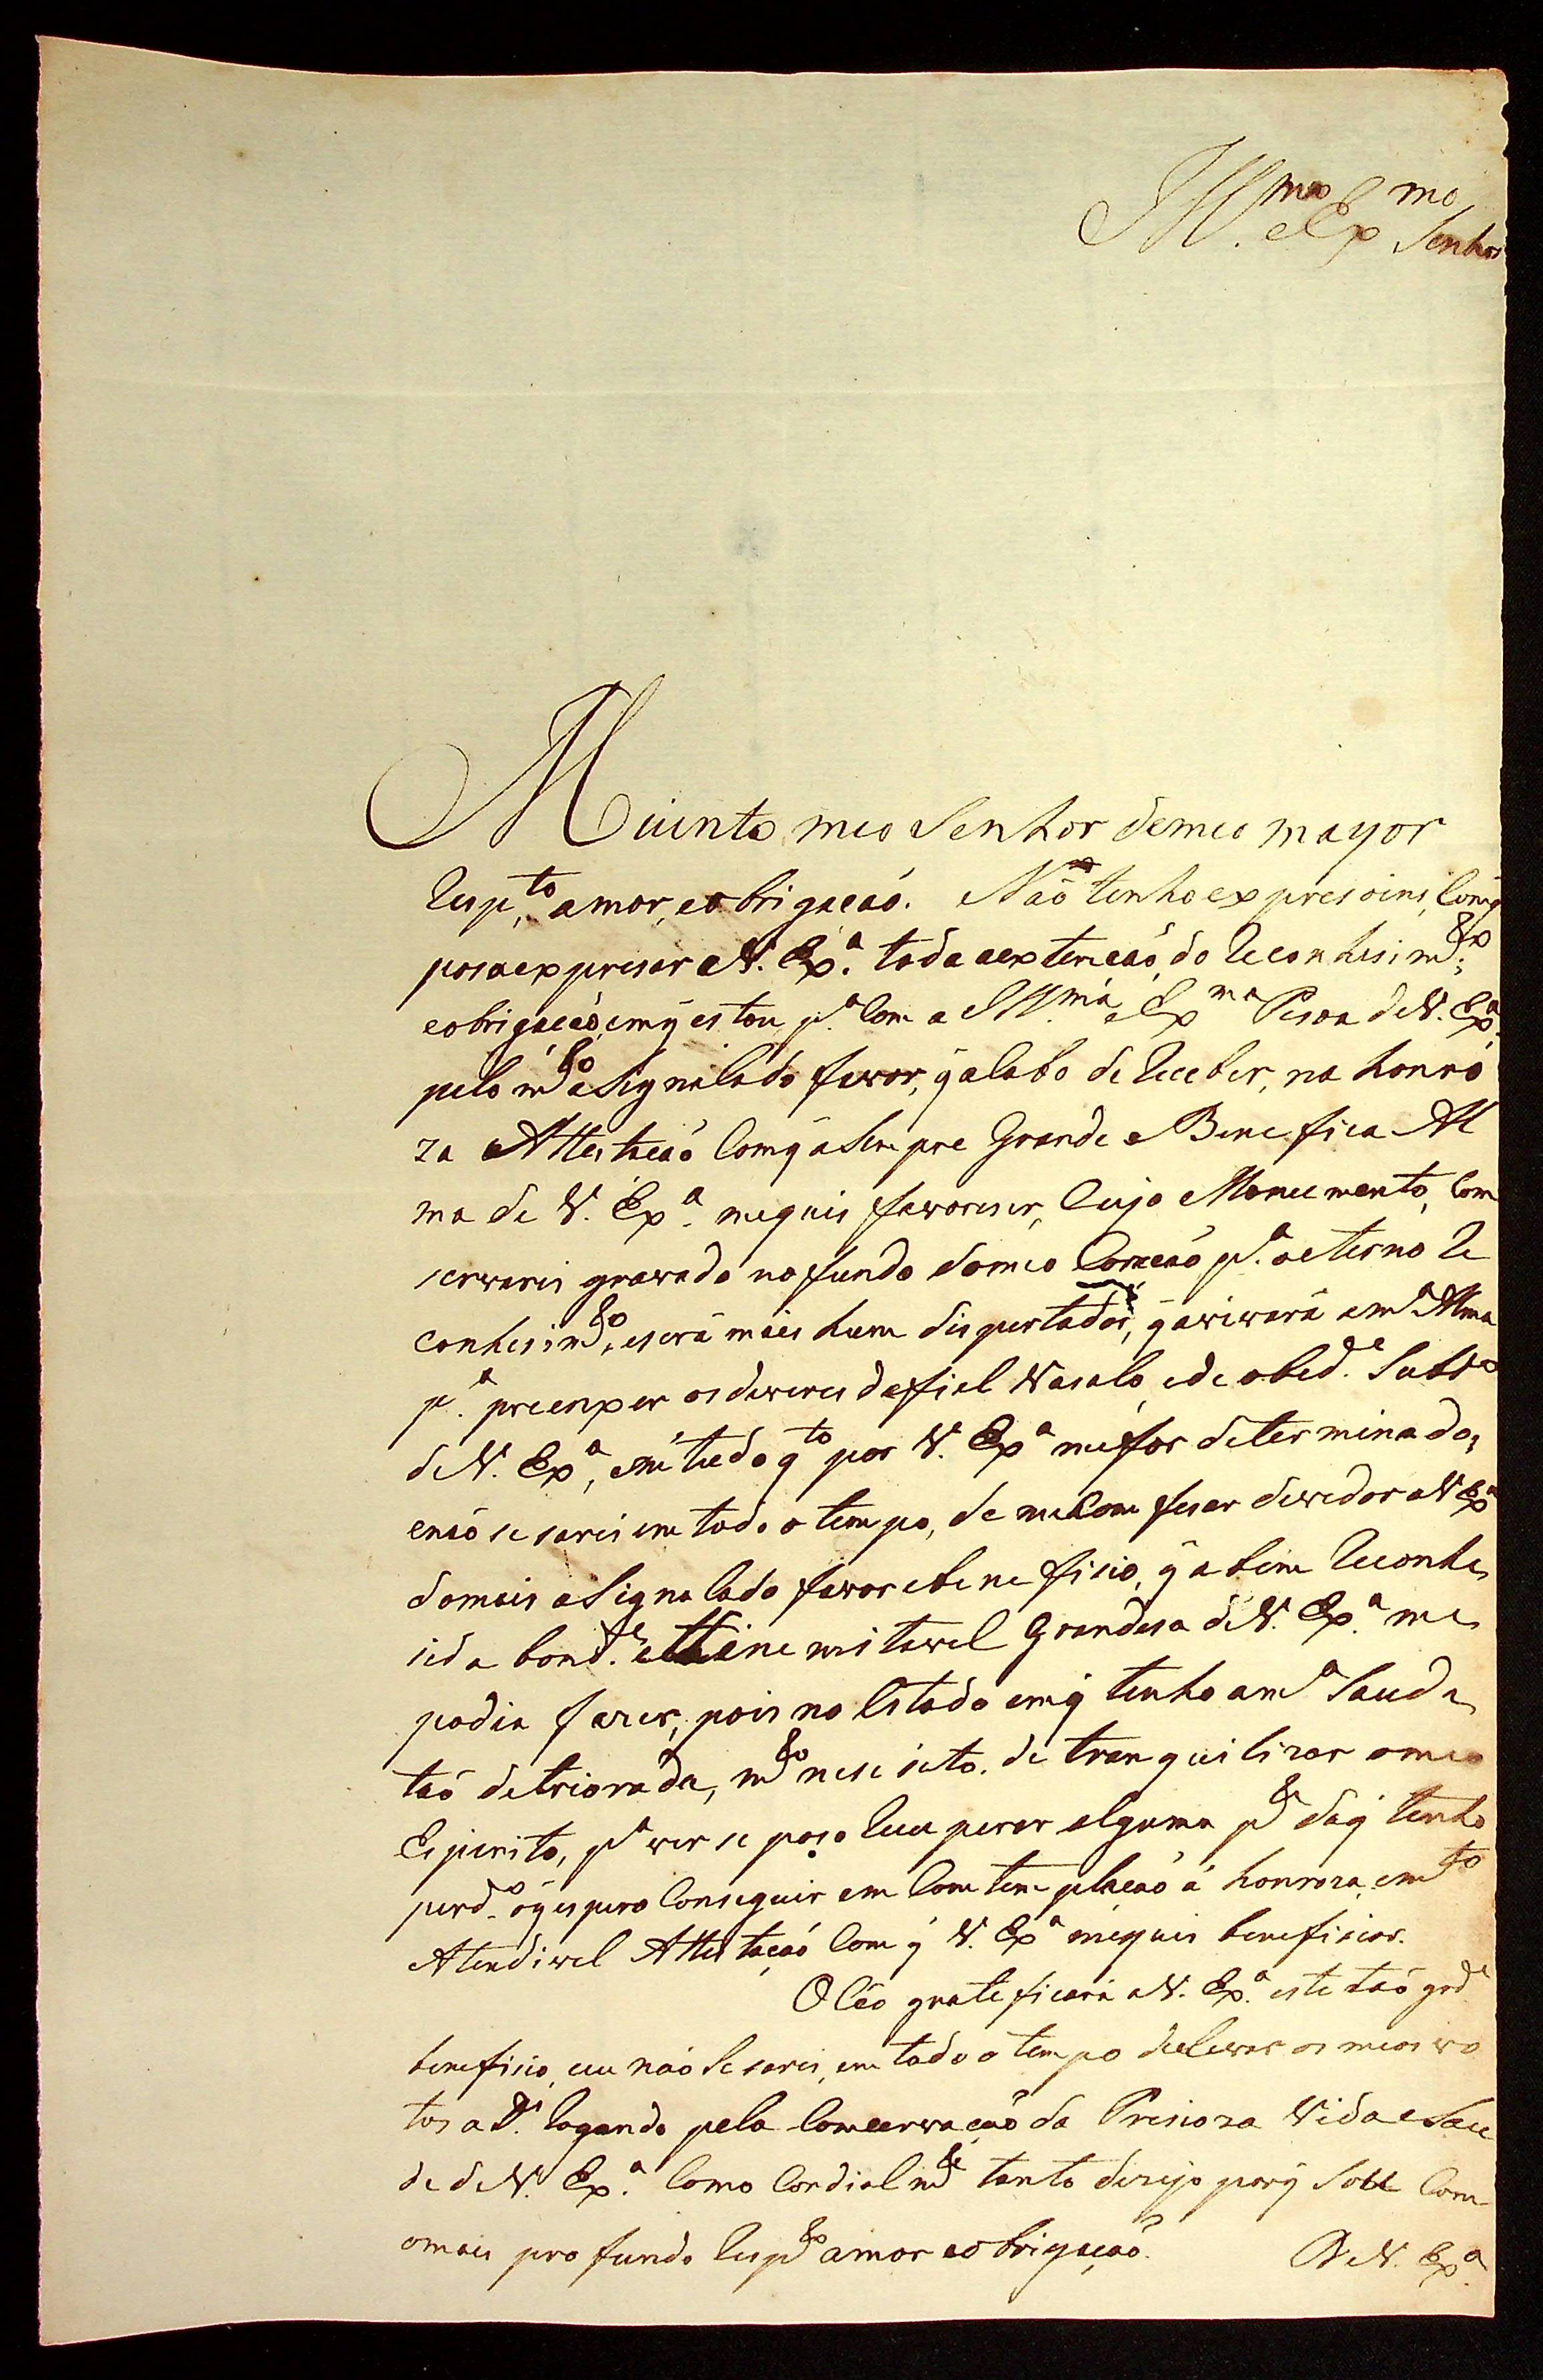 Ill.mo e Ex.mo Senhor
Muinto meo Senhor de meo mayor
Resp.to, amor, e obrigacaó. Naõ tenho expresoins, Com q̃
posa expresar a V. Ex.ª toda a extencaó do Reconhesim.to,
e obrigacaó em q̃ estou p.ª Com a Ill.ma e Ex.ma Pesoa de V. Ex.ª,
pelo m.to aSignalado favor, q̃ acabo de Receber, na honro
za Attestacaó Com q̃ a Sempre Grande e Benefica Al
ma de V. Ex.ª me quis favoreser, Cujo Monumento, Com
servarei gravado no fundo do meo Coracaó p.ª o eterno Re
conhesim.to, e será mais hum dispertador, q̃ avivará a m.ª Alma
p.ª preenxer os deveres de fiel Vasalo, e de obed.e Subd.o
de V. Ex.ª, em tudo q.to por V. Ex.ª me for determinado,
e naó sesarei em todo o tempo, de me Comfesar devedor a V. Ex.ª
do mais aSignalado favor e benefisio, q̃ a bem Reconhe
sida bond.e e inemitavel Grandesa de V. Ex.ª me
podia fazer, pois no Estado em q̃ tenho a m.ª Saude
taó detriorada, m.to nesesito de tranquilizar o meo
Espirito, p.ª ver se poso Recuperar alguma p.te da q̃ tenho
perd.o o q̃ espero Conseguir em Comtemplacaó á honroza, e m.to
Atendivel Attestaçaó Com q̃ V. Ex.ª me quis benefisiar.
O Céo gratificará a V. Ex.ª este taó grd.e
benefisio, eu naó Sesarei, em todo o tempo de elevar os meos vo
tos a D.s Rogando pela Comcervaçaó da Presioza Vida e Sau
de de V. Ex.ª Como Cordialm.te tanto desejo porq̃ Sou Com
o mais profundo Resp.to amor e obrigaçaõ. De V. Ex.ª